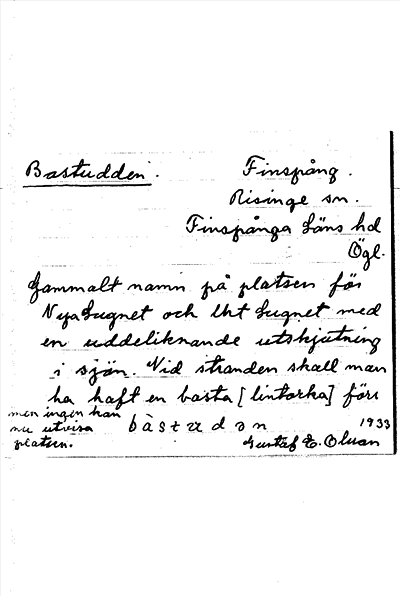 Bastudden.
Finspång.
Risinge sn.
Finspånga Läns hd
Ögl.
Gammalt namn på platsen för
Nya Lugnet och Utt Lugnet med
en uddeliknande utskjutning
i sjön. Vid stranden skall man
ha haft en basta [lintorka] förr
men ingen kan
nu utvisa
platsen.
bàstudən
1933
Gustaf E. Olsson